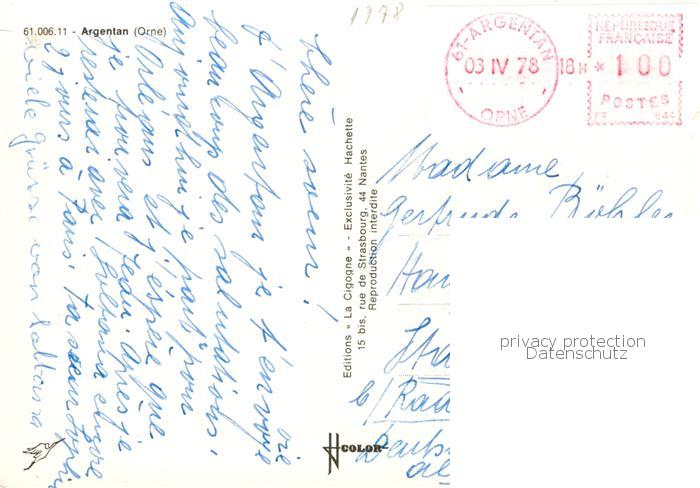 1978
61.006.11 - Argentan (Orne)
61-ARGENTAN
03 IV 78 18H
ORNE
REPUBLIQUE
FRANÇAISE
* 1 00
POSTES
PR 644
Chère soeur!
d'Argentan je t'envoie
beaucoup des salutations,
Aujourd'hui je pars pour
Orléans et j'espère que
je
rester avec encore
2 jours à Paris. Ta soeur
viele Grüsse von
Editions « La Cigogne » - Exclusivité Hachette
15 bis, rue de Strasbourg, 44 Nantes
Reproduction interdite
COLOR
Madame
Gertrude
b/
privacy protection
Datenschutz